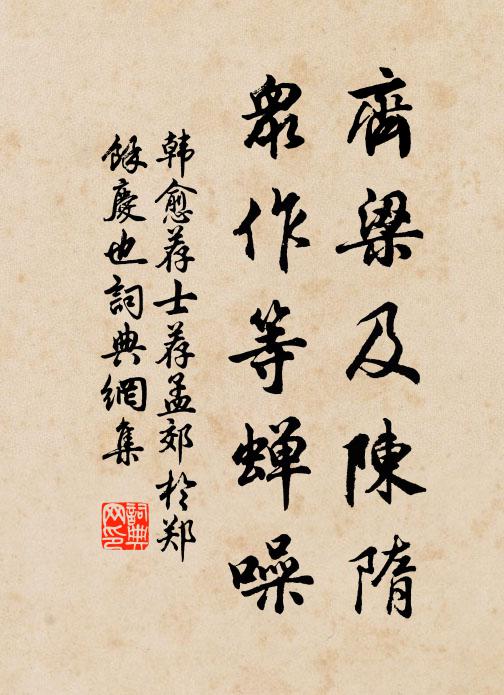 齊梁及陳隋
衆作等蝉噪
韩愈荐士荐孟郊於郑
餘慶也詞典網集
詞典网印